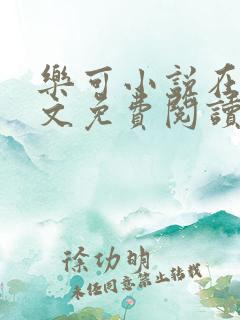 樂可小說在
文免費閱讀
徐功明
未经同意禁止转载